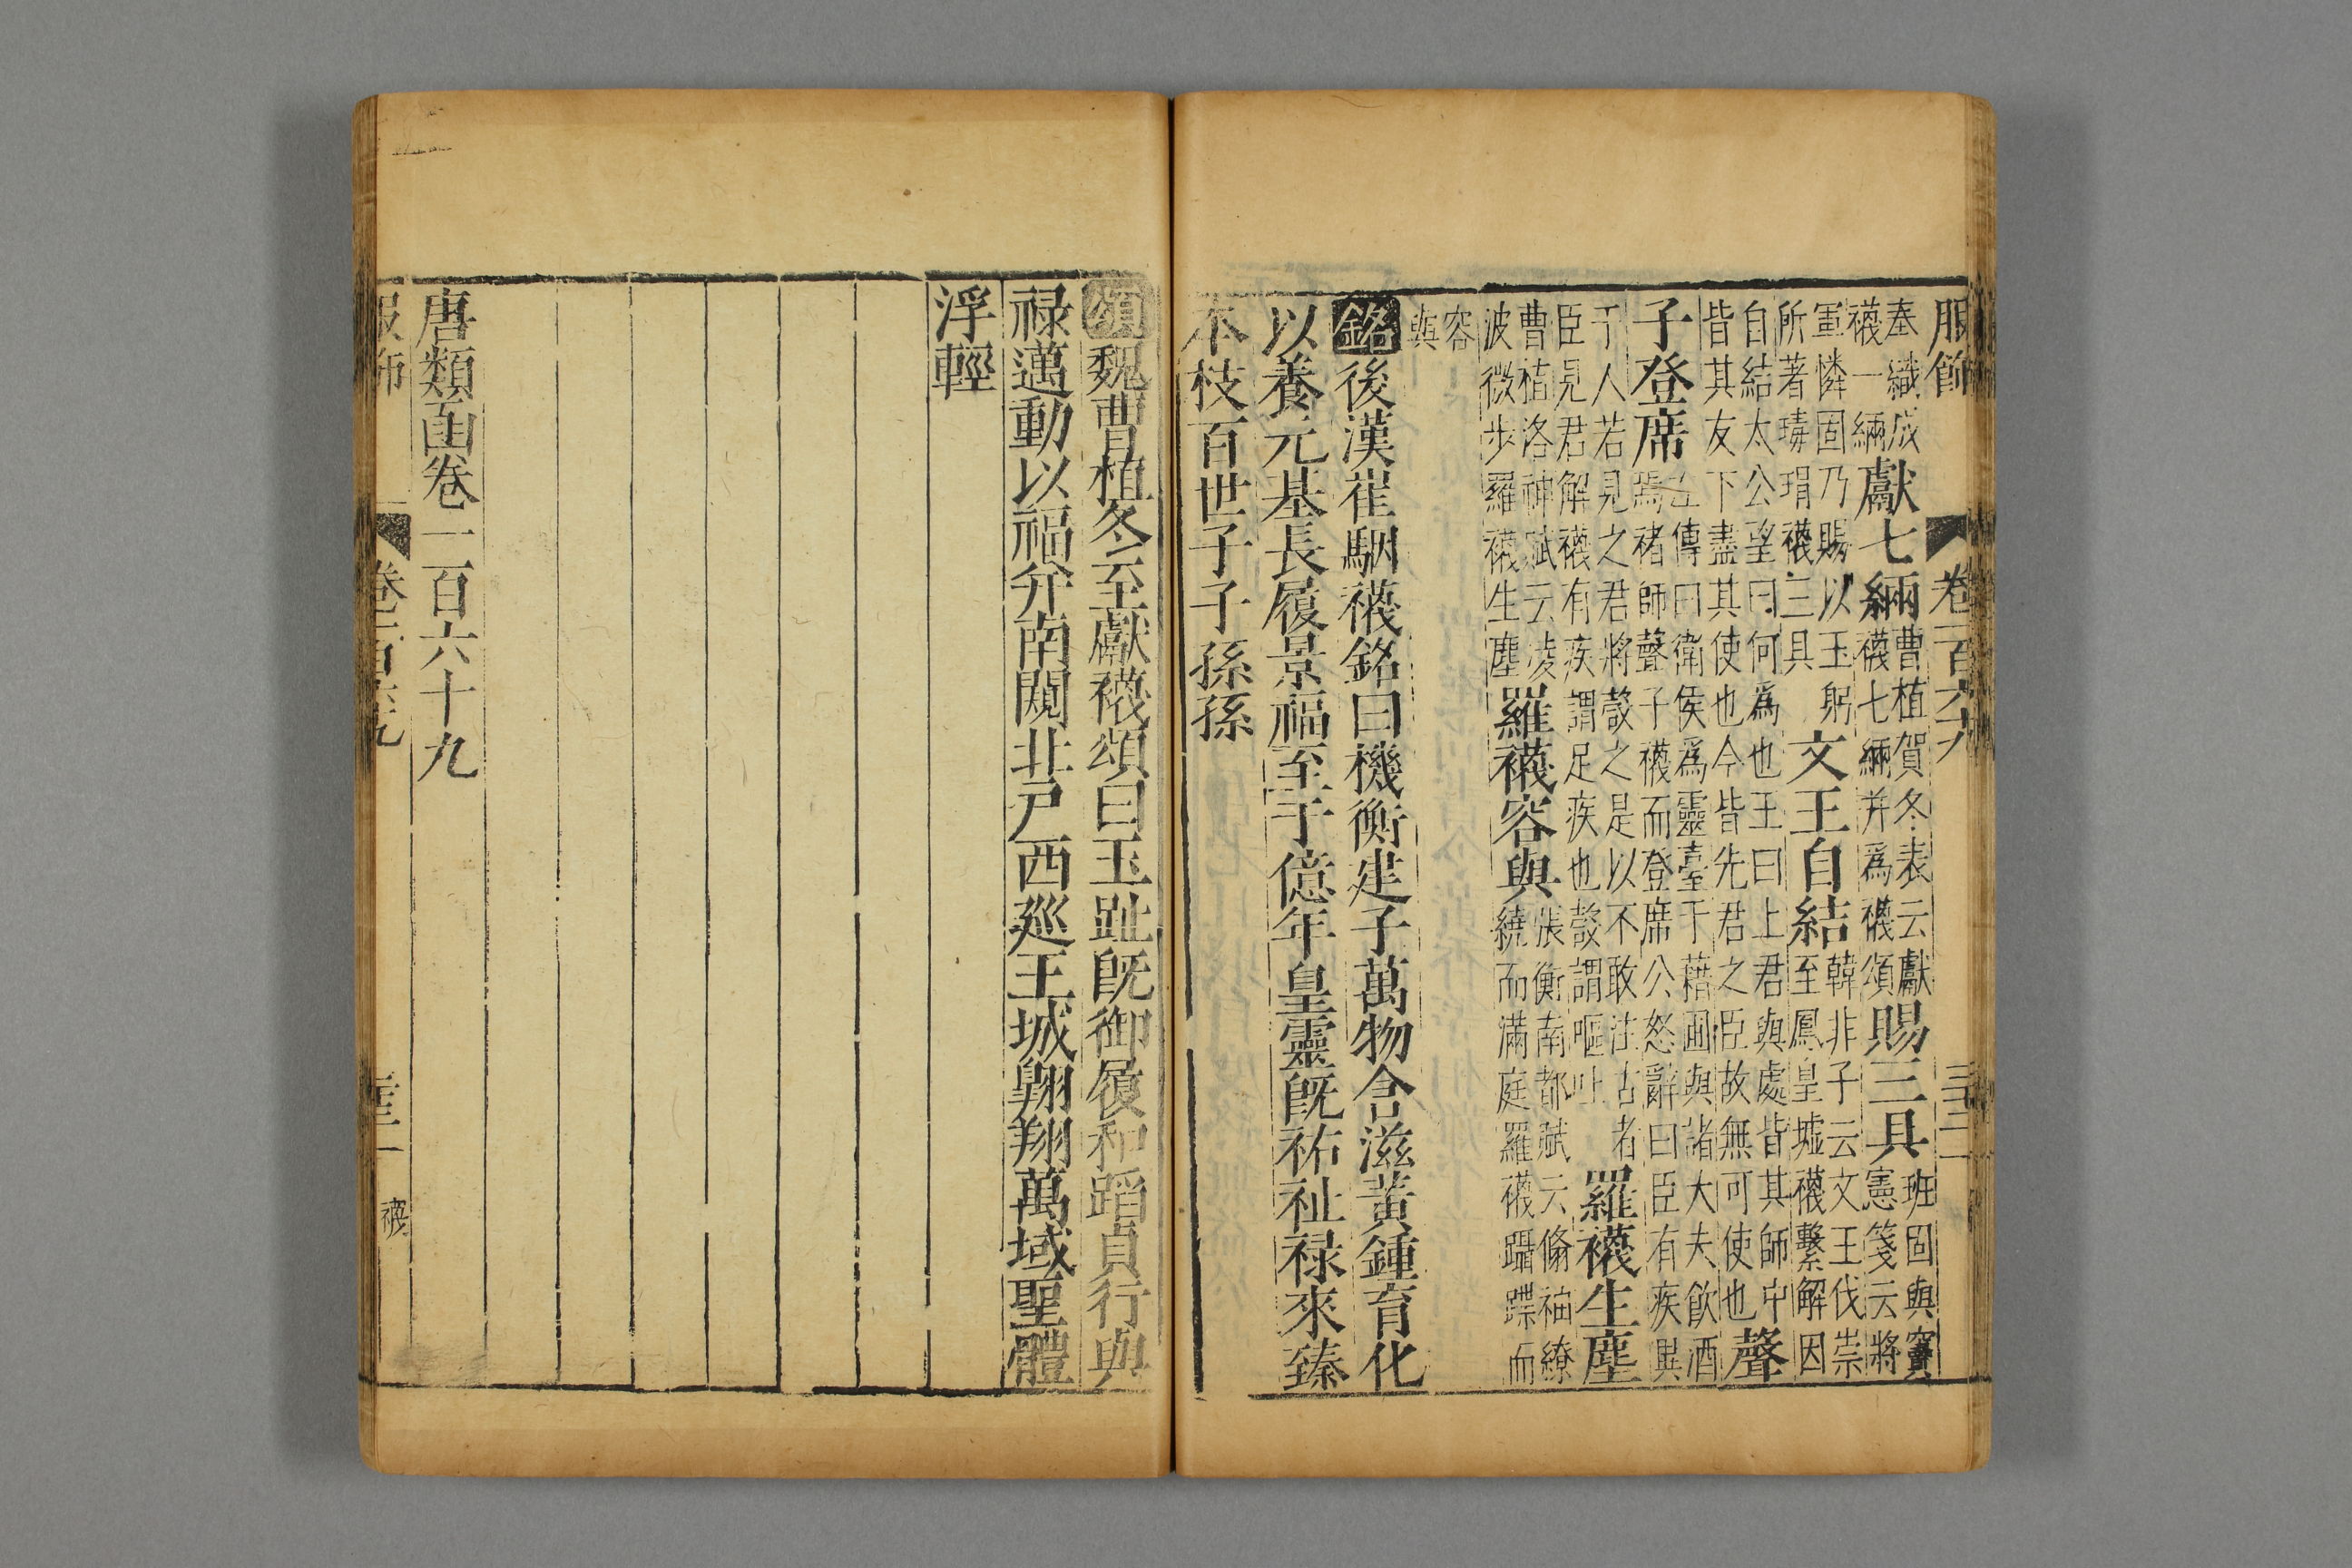 服飾 卷一百六十九 三十二
奉織成
襪一緉
獻七緉
曹植賀冬表云獻
襪七緉并爲襪頌
賜三具
班固與竇
憲箋云將
軍憐固乃賜以玉躬
所著瑇瑁襪三具
文王自結
韓非子云文王伐崇
至鳳皇墟襪繫解因
自結太公望曰何爲也王曰上君與處皆其師中
皆其友下盡其使也今皆先君之臣故無可使也
聲
子登席
左傳曰衛侯爲靈臺于藉圃與諸大夫飲酒
焉禇師聲子襪而登席公怒辭曰臣有疾異
于人若見之君將嗀之是以不敢注古者
臣見君解襪有疾謂足疾也嗀謂嘔吐
羅襪生塵
曹植洛神賦云凌
波微步羅襪生塵
羅襪容與
張衡南都賦云翛袖繚
繞而滿庭羅襪躡蹀而
容
與
銘後漢崔駰襪銘曰機衡建子萬物含滋黃鍾育化
以養元基長履景福至于億年皇靈旣祐祉祿來臻
本枝百世子子孫孫
頌魏曹植冬至獻襪頌曰玉趾旣御履和蹈貞行與
祿邁動以福并南闚北戸西巡王城翺翔萬域聖體
浮輕
唐類函卷一百六十九
服飾 卷一百六十九 三十二 襪